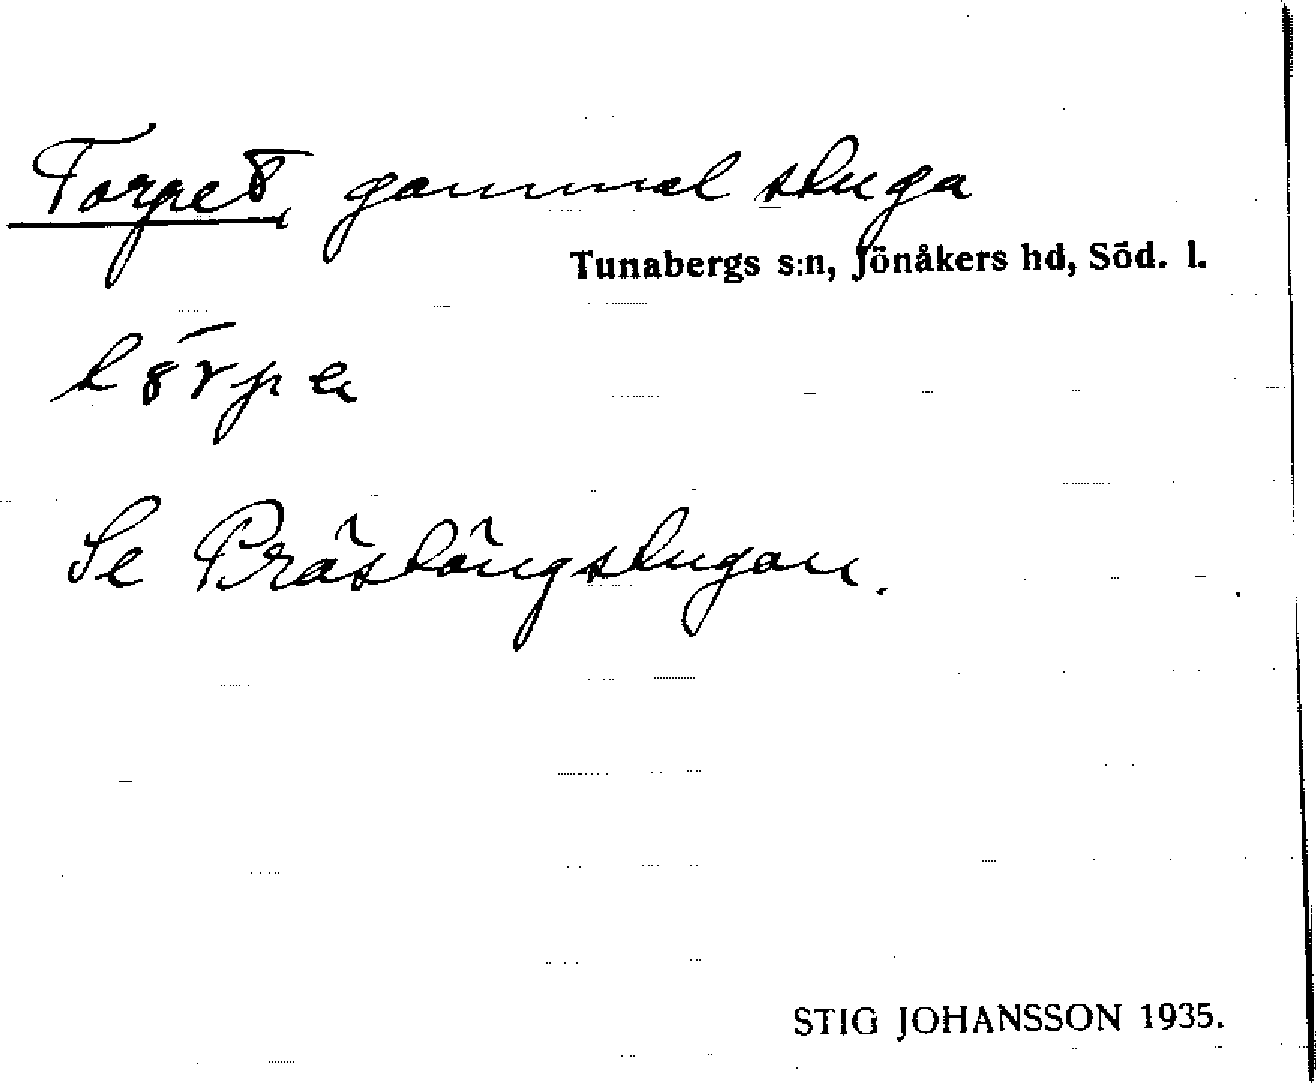 Torpet, gammal stuga
Tunabergs s:n, Jönåkers hd, Söd. l.
Se Prästängstugan.
STIG JOHANSSON 1935.